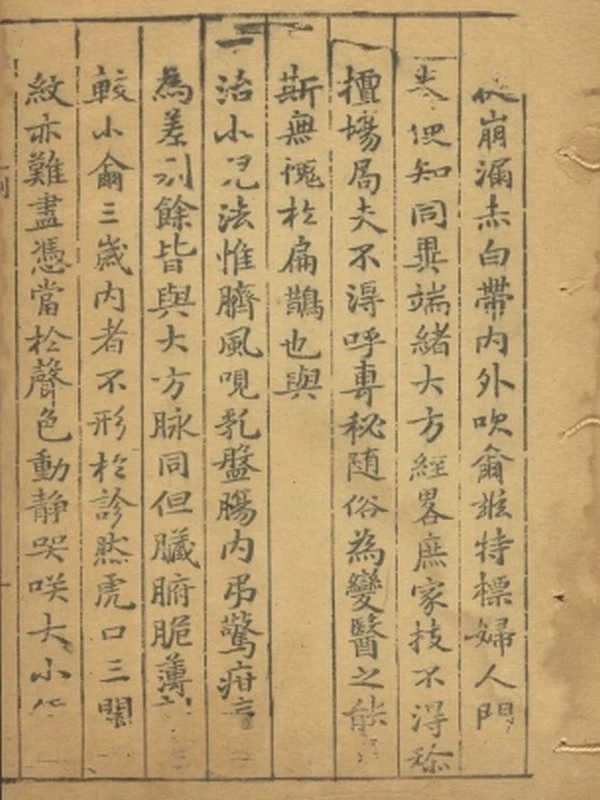 崩漏赤白帶内外吹爾誰特標婦人門
便知同異端緒大方經畧庶家技不得称
擅塲局夫不淂呼専秘随俗為變醫之能
斯無愧於扁鵲也與
一治小児法惟臍風哯乳盤膓内吊驚疳
為差别餘皆與大方脉同但臟腑脆薄
較小爾三歲内者不形於診然虎口三關
紋亦難盡憑當於聲色動静哭咲大小